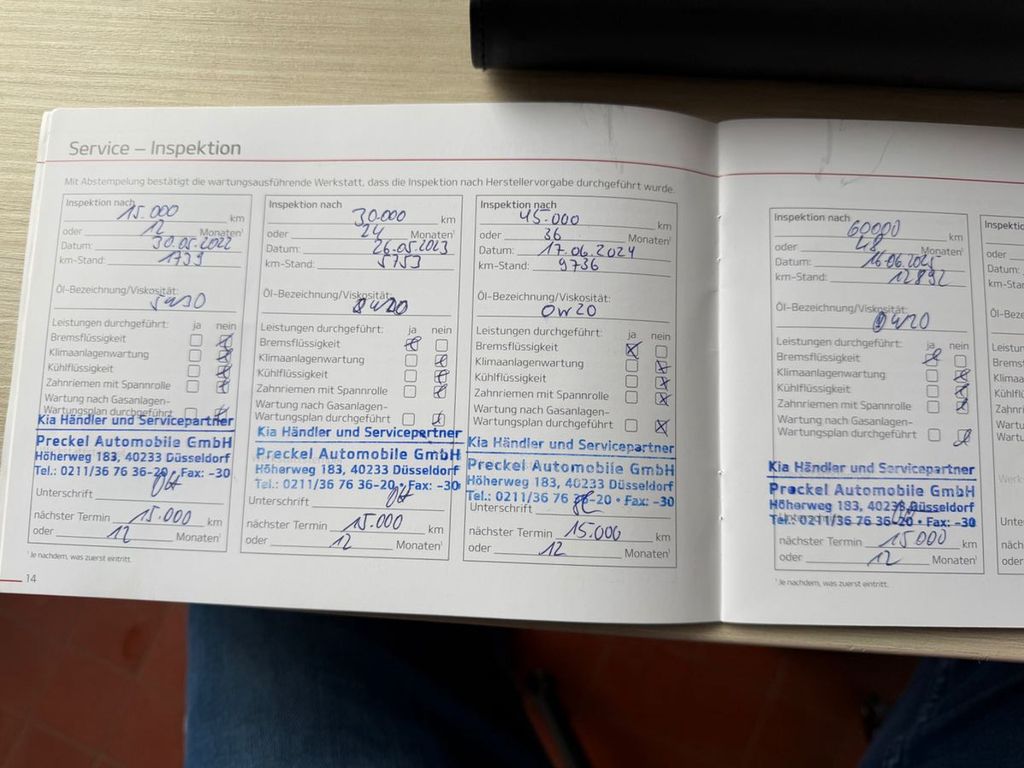 Service – Inspektion
Mit Abstempelung bestätigt die wartungsausführende Werkstatt, dass die Inspektion nach Herstellervorgabe durchgeführt wurde.
Inspektion nach 15.000 km
oder 12 Monaten¹
Datum: 30.05.2022
km-Stand: 1739
Öl-Bezeichnung/Viskosität:
5w30
Leistungen durchgeführt: ja nein
Bremsflüssigkeit ☐ ☒
Klimaanlagenwartung ☐ ☒
Kühlflüssigkeit ☐ ☒
Zahnriemen mit Spannrolle ☐ ☒
Wartung nach Gasanlagen-
Wartungsplan durchgeführt ☐ ☒
Kia Händler und Servicepartner
Preckel Automobile GmbH
Höherweg 183, 40233 Düsseldorf
Tel.: 0211/36 76 36-20 • Fax: -30
Unterschrift
nächster Termin 15.000 km
oder 12 Monaten¹
¹Je nachdem, was zuerst eintritt.
14
Inspektion nach 30.000 km
oder 24 Monaten¹
Datum: 26.05.2023
km-Stand: 5753
Öl-Bezeichnung/Viskosität:
0w20
Leistungen durchgeführt: ja nein
Bremsflüssigkeit ☒ ☐
Klimaanlagenwartung ☐ ☒
Kühlflüssigkeit ☐ ☒
Zahnriemen mit Spannrolle ☐ ☒
Wartung nach Gasanlagen-
Wartungsplan durchgeführt ☐ ☒
Kia Händler und Servicepartner
Preckel Automobile GmbH
Höherweg 183, 40233 Düsseldorf
Tel.: 0211/36 76 36-20 • Fax: -30
Unterschrift
nächster Termin 15.000 km
oder 12 Monaten¹
Inspektion nach 45.000 km
oder 36 Monaten¹
Datum: 17.06.2024
km-Stand: 9736
Öl-Bezeichnung/Viskosität:
0w20
Leistungen durchgeführt: ja nein
Bremsflüssigkeit ☒ ☐
Klimaanlagenwartung ☐ ☒
Kühlflüssigkeit ☐ ☒
Zahnriemen mit Spannrolle ☐ ☒
Wartung nach Gasanlagen-
Wartungsplan durchgeführt ☐ ☒
Kia Händler und Servicepartner
Preckel Automobile GmbH
Höherweg 183, 40233 Düsseldorf
Tel.: 0211/36 76 36-20 • Fax: -30
Unterschrift
nächster Termin 15.000 km
oder 12 Monaten¹
Inspektion nach 60000 km
oder 48 Monaten¹
Datum: 16.06.2025
km-Stand: 12892
Öl-Bezeichnung/Viskosität:
0w20
Leistungen durchgeführt: ja nein
Bremsflüssigkeit ☒ ☐
Klimaanlagenwartung ☐ ☒
Kühlflüssigkeit ☐ ☒
Zahnriemen mit Spannrolle ☐ ☒
Wartung nach Gasanlagen-
Wartungsplan durchgeführt ☐ ☒
Kia Händler und Servicepartner
Preckel Automobile GmbH
Höherweg 183, 40233 Düsseldorf
Tel.: 0211/36 76 36-20 • Fax: -30
nächster Termin 15000 km
oder 12 Monaten¹
¹Je nachdem, was zuerst eintritt.
oder
Datum: